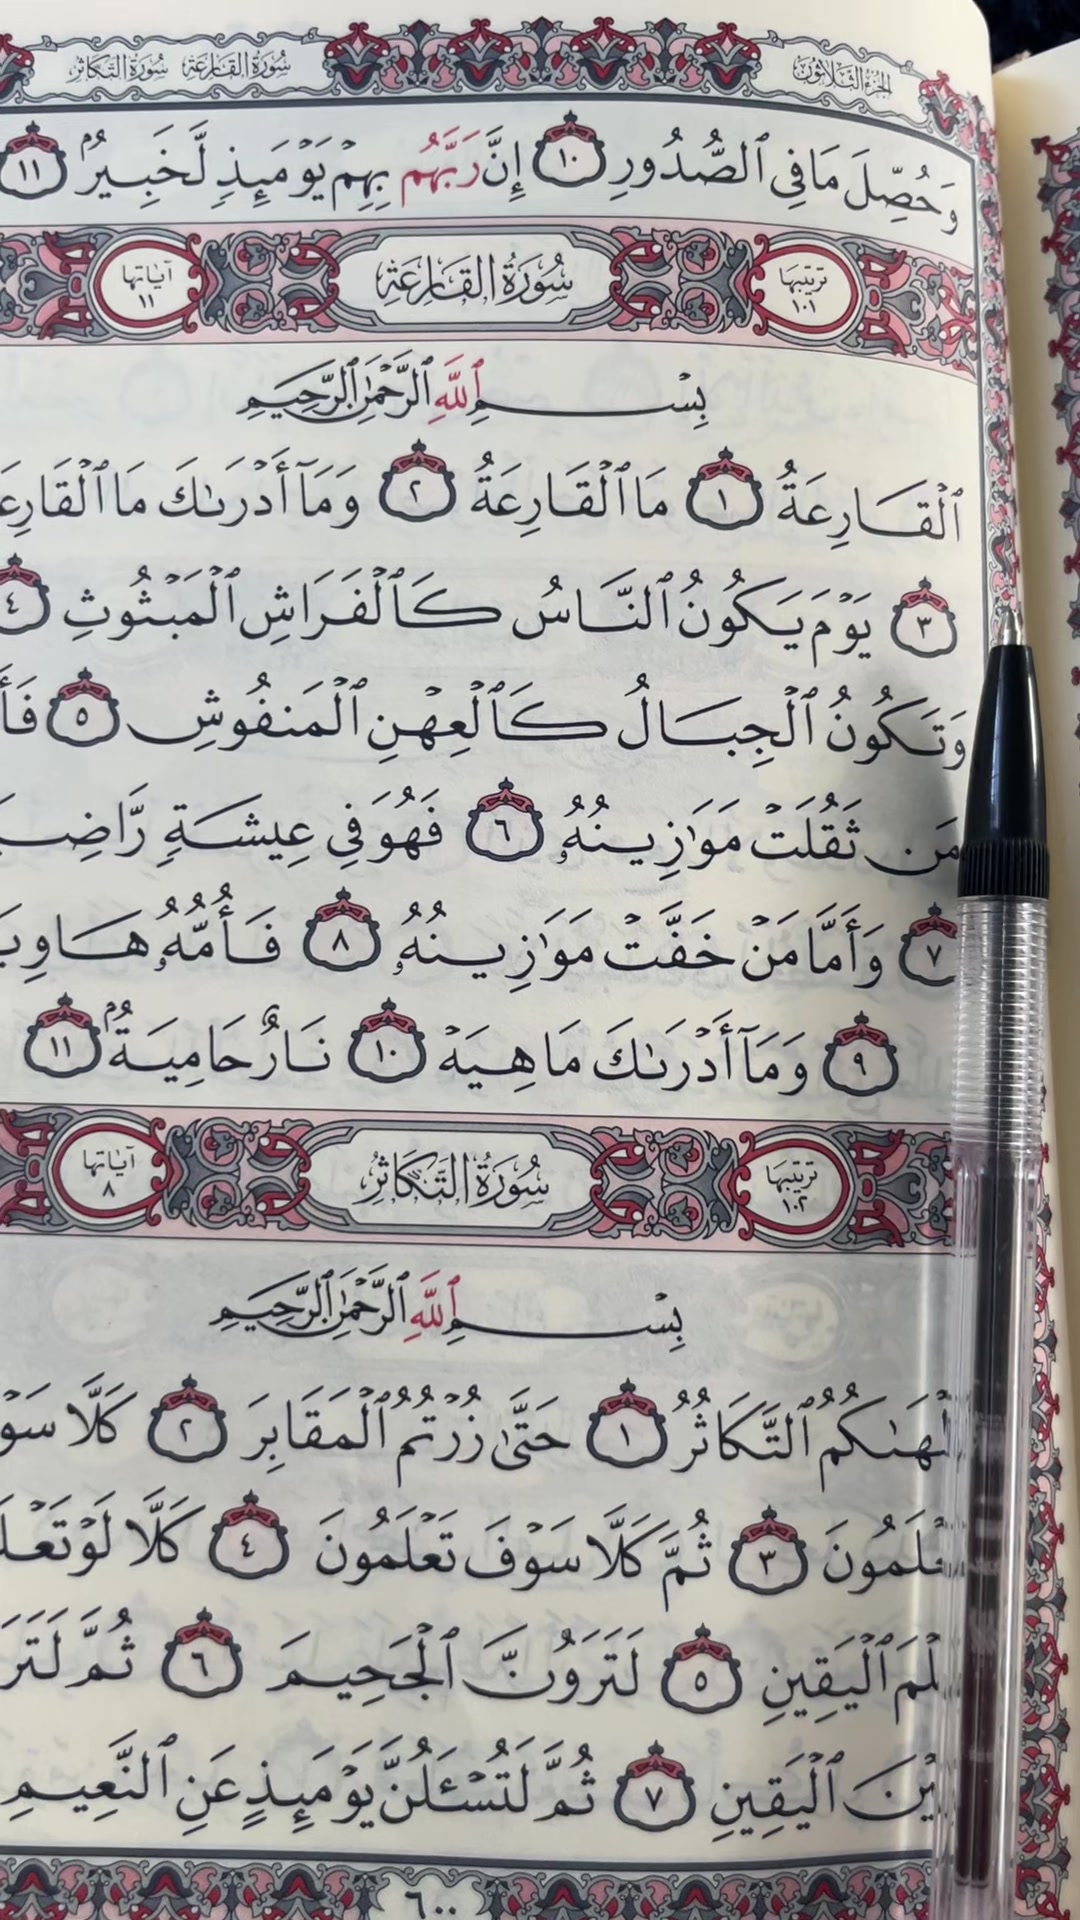 الجزء الثلاثون
سورة القارعة سورة التكاثر
وَحُصِّلَ مَا فِى ٱلصُّدُورِ ١٠ إِنَّ رَبَّهُم بِهِمْ يَوْمَئِذٍ لَّخَبِيرٌۢ ١١
ترتيبها ١٠١ سُورَةُ القَارِعَةِ آياتها ١١
بِسْمِ ٱللَّهِ ٱلرَّحْمَٰنِ ٱلرَّحِيمِ
ٱلْقَارِعَةُ ١ مَا ٱلْقَارِعَةُ ٢ وَمَآ أَدْرَىٰكَ مَا ٱلْقَارِعَ
٣ يَوْمَ يَكُونُ ٱلنَّاسُ كَٱلْفَرَاشِ ٱلْمَبْثُوثِ ٤
وَتَكُونُ ٱلْجِبَالُ كَٱلْعِهْنِ ٱلْمَنفُوشِ ٥ فَأَ
مَن ثَقُلَتْ مَوَٰزِينُهُۥ ٦ فَهُوَ فِى عِيشَةٍ رَّاضِيَ
٧ وَأَمَّا مَنْ خَفَّتْ مَوَٰزِينُهُۥ ٨ فَأُمُّهُۥ هَاوِيَ
٩ وَمَآ أَدْرَىٰكَ مَا هِيَهْ ١٠ نَارٌ حَامِيَةٌۢ ١١
ترتيبها ١٠٢ سُورَةُ التَّكَاثُرِ آياتها ٨
بِسْمِ ٱللَّهِ ٱلرَّحْمَٰنِ ٱلرَّحِيمِ
لْهَىٰكُمُ ٱلتَّكَاثُرُ ١ حَتَّىٰ زُرْتُمُ ٱلْمَقَابِرَ ٢ كَلَّا سَوْ
عْلَمُونَ ٣ ثُمَّ كَلَّا سَوْفَ تَعْلَمُونَ ٤ كَلَّا لَوْ تَعْلَ
لْمَ ٱلْيَقِينِ ٥ لَتَرَوُنَّ ٱلْجَحِيمَ ٦ ثُمَّ لَتَرَ
يْنَ ٱلْيَقِينِ ٧ ثُمَّ لَتُسْـَٔلُنَّ يَوْمَئِذٍ عَنِ ٱلنَّعِيمِ
٦٠٠